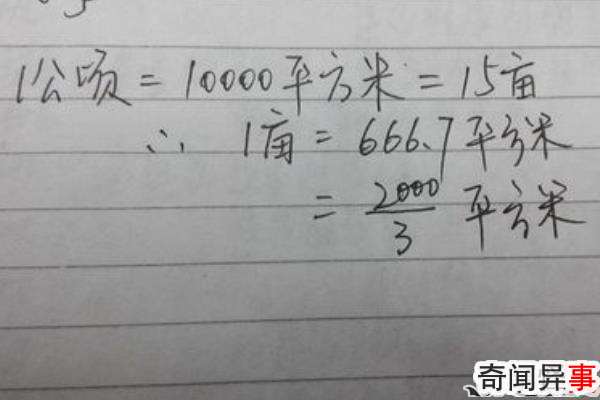 1公顷 = 10000平方米 = 15亩
∴ 1亩 = 666.7平方米
= 2000/3 平方米
奇闻异事